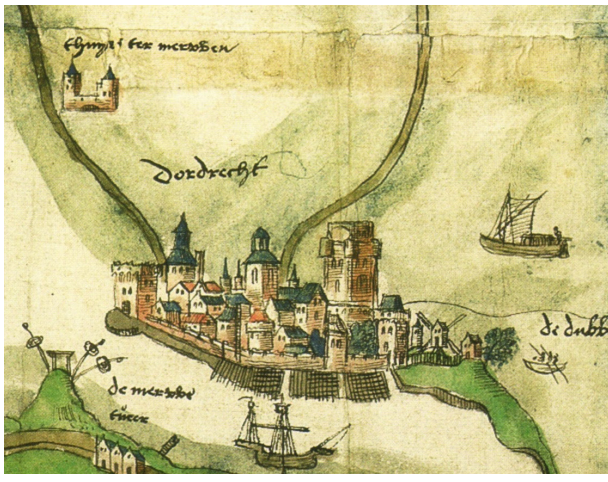 thuys ter merwen
Dordrecht
de dubb
de merwe